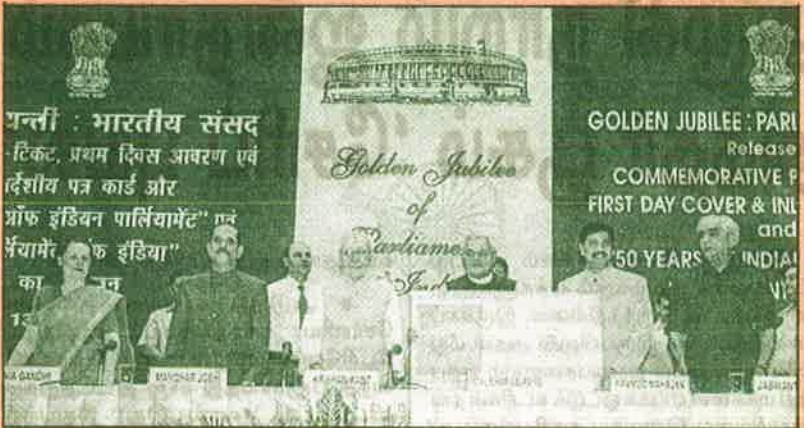 यन्ती : भारतीय संसद
-टिकट, प्रथम दिवस आवरण एवं
र्देशीय पत्र कार्ड और
ऑफ इंडियन पार्लियामेंट" एवं
र्लयामेंट ऑफ इंडिया"
का
13
Golden Jubilee
of
Parliame
Ind
GOLDEN JUBILEE : PARL
Release
COMMEMORATIVE P
FIRST DAY COVER & INL
and
"50 YEARS INDIA
IA GANDHI
MANOHAR JOSHI
JASWANT